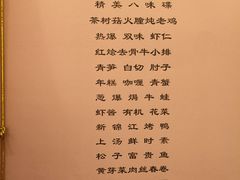 精美八味碟
茶树菇火腱炖老鸡
热爆双味虾仁
红烩去骨牛小排
青笋白切肘子
年糕咖喱青蟹
葱爆焗牛蛙
虾酱有机花菜
新锦江烤鸭
上汤鲜时素
松子富贵鱼
黄芽菜肉丝春卷